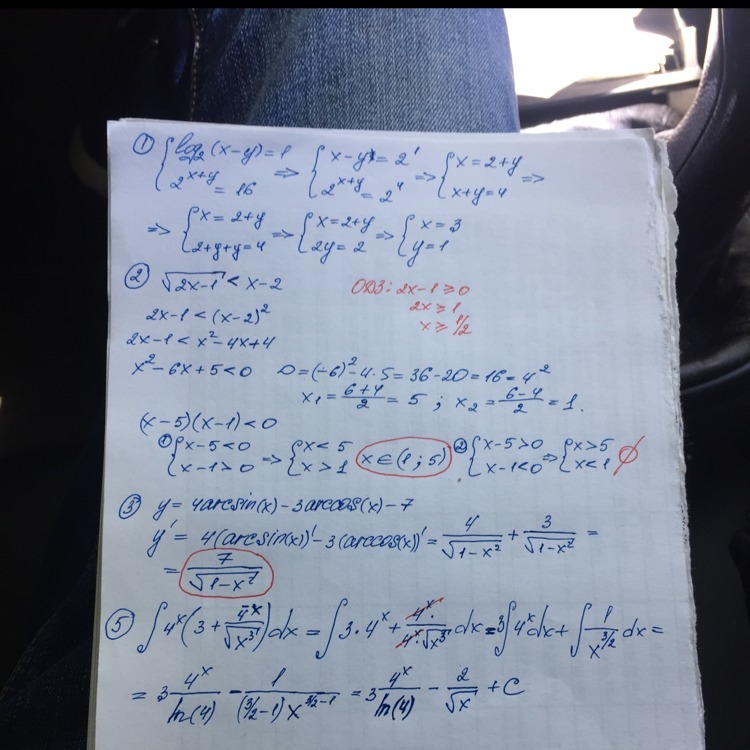 ① {log₂(x-y)=1 => {x-y=2¹ => {x=2+y =>
{2^{x+y}=16 {2^{x+y}=2⁴ {x+y=4
=> {x=2+y => {x=2+y => {x=3
{2+y+y=4 {2y=2 {y=1
② √(2x-1) < x-2 ОДЗ: 2x-1≥0
2x≥1
x≥1/2
2x-1<(x-2)²
2x-1<x²-4x+4
x²-6x+5<0 D=(-6)²-4·5=36-20=16=4²
x₁=(6+4)/2=5; x₂=(6-4)/2=1.
(x-5)(x-1)<0
① {x-5<0 => {x<5 x∈(1;5) ② {x-5>0 => {x>5 ∅
{x-1>0 {x>1 {x-1<0 {x<1
③ y=4arcsin(x)-3arccos(x)-7
y'=4(arcsin(x))'-3(arccos(x))'=4/√(1-x²)+3/√(1-x²)=
=7/√(1-x²)
⑤ ∫4ˣ(3+4⁻ˣ/√x³)dx=∫3·4ˣ+4ˣ·/4ˣ·√x³ dx=3∫4ˣdx+∫1/x^{3/2} dx=
=3 4ˣ/ln(4) - 1/((3/2-1)x^{3/2-1}) = 3 4ˣ/ln(4) - 2/√x + C